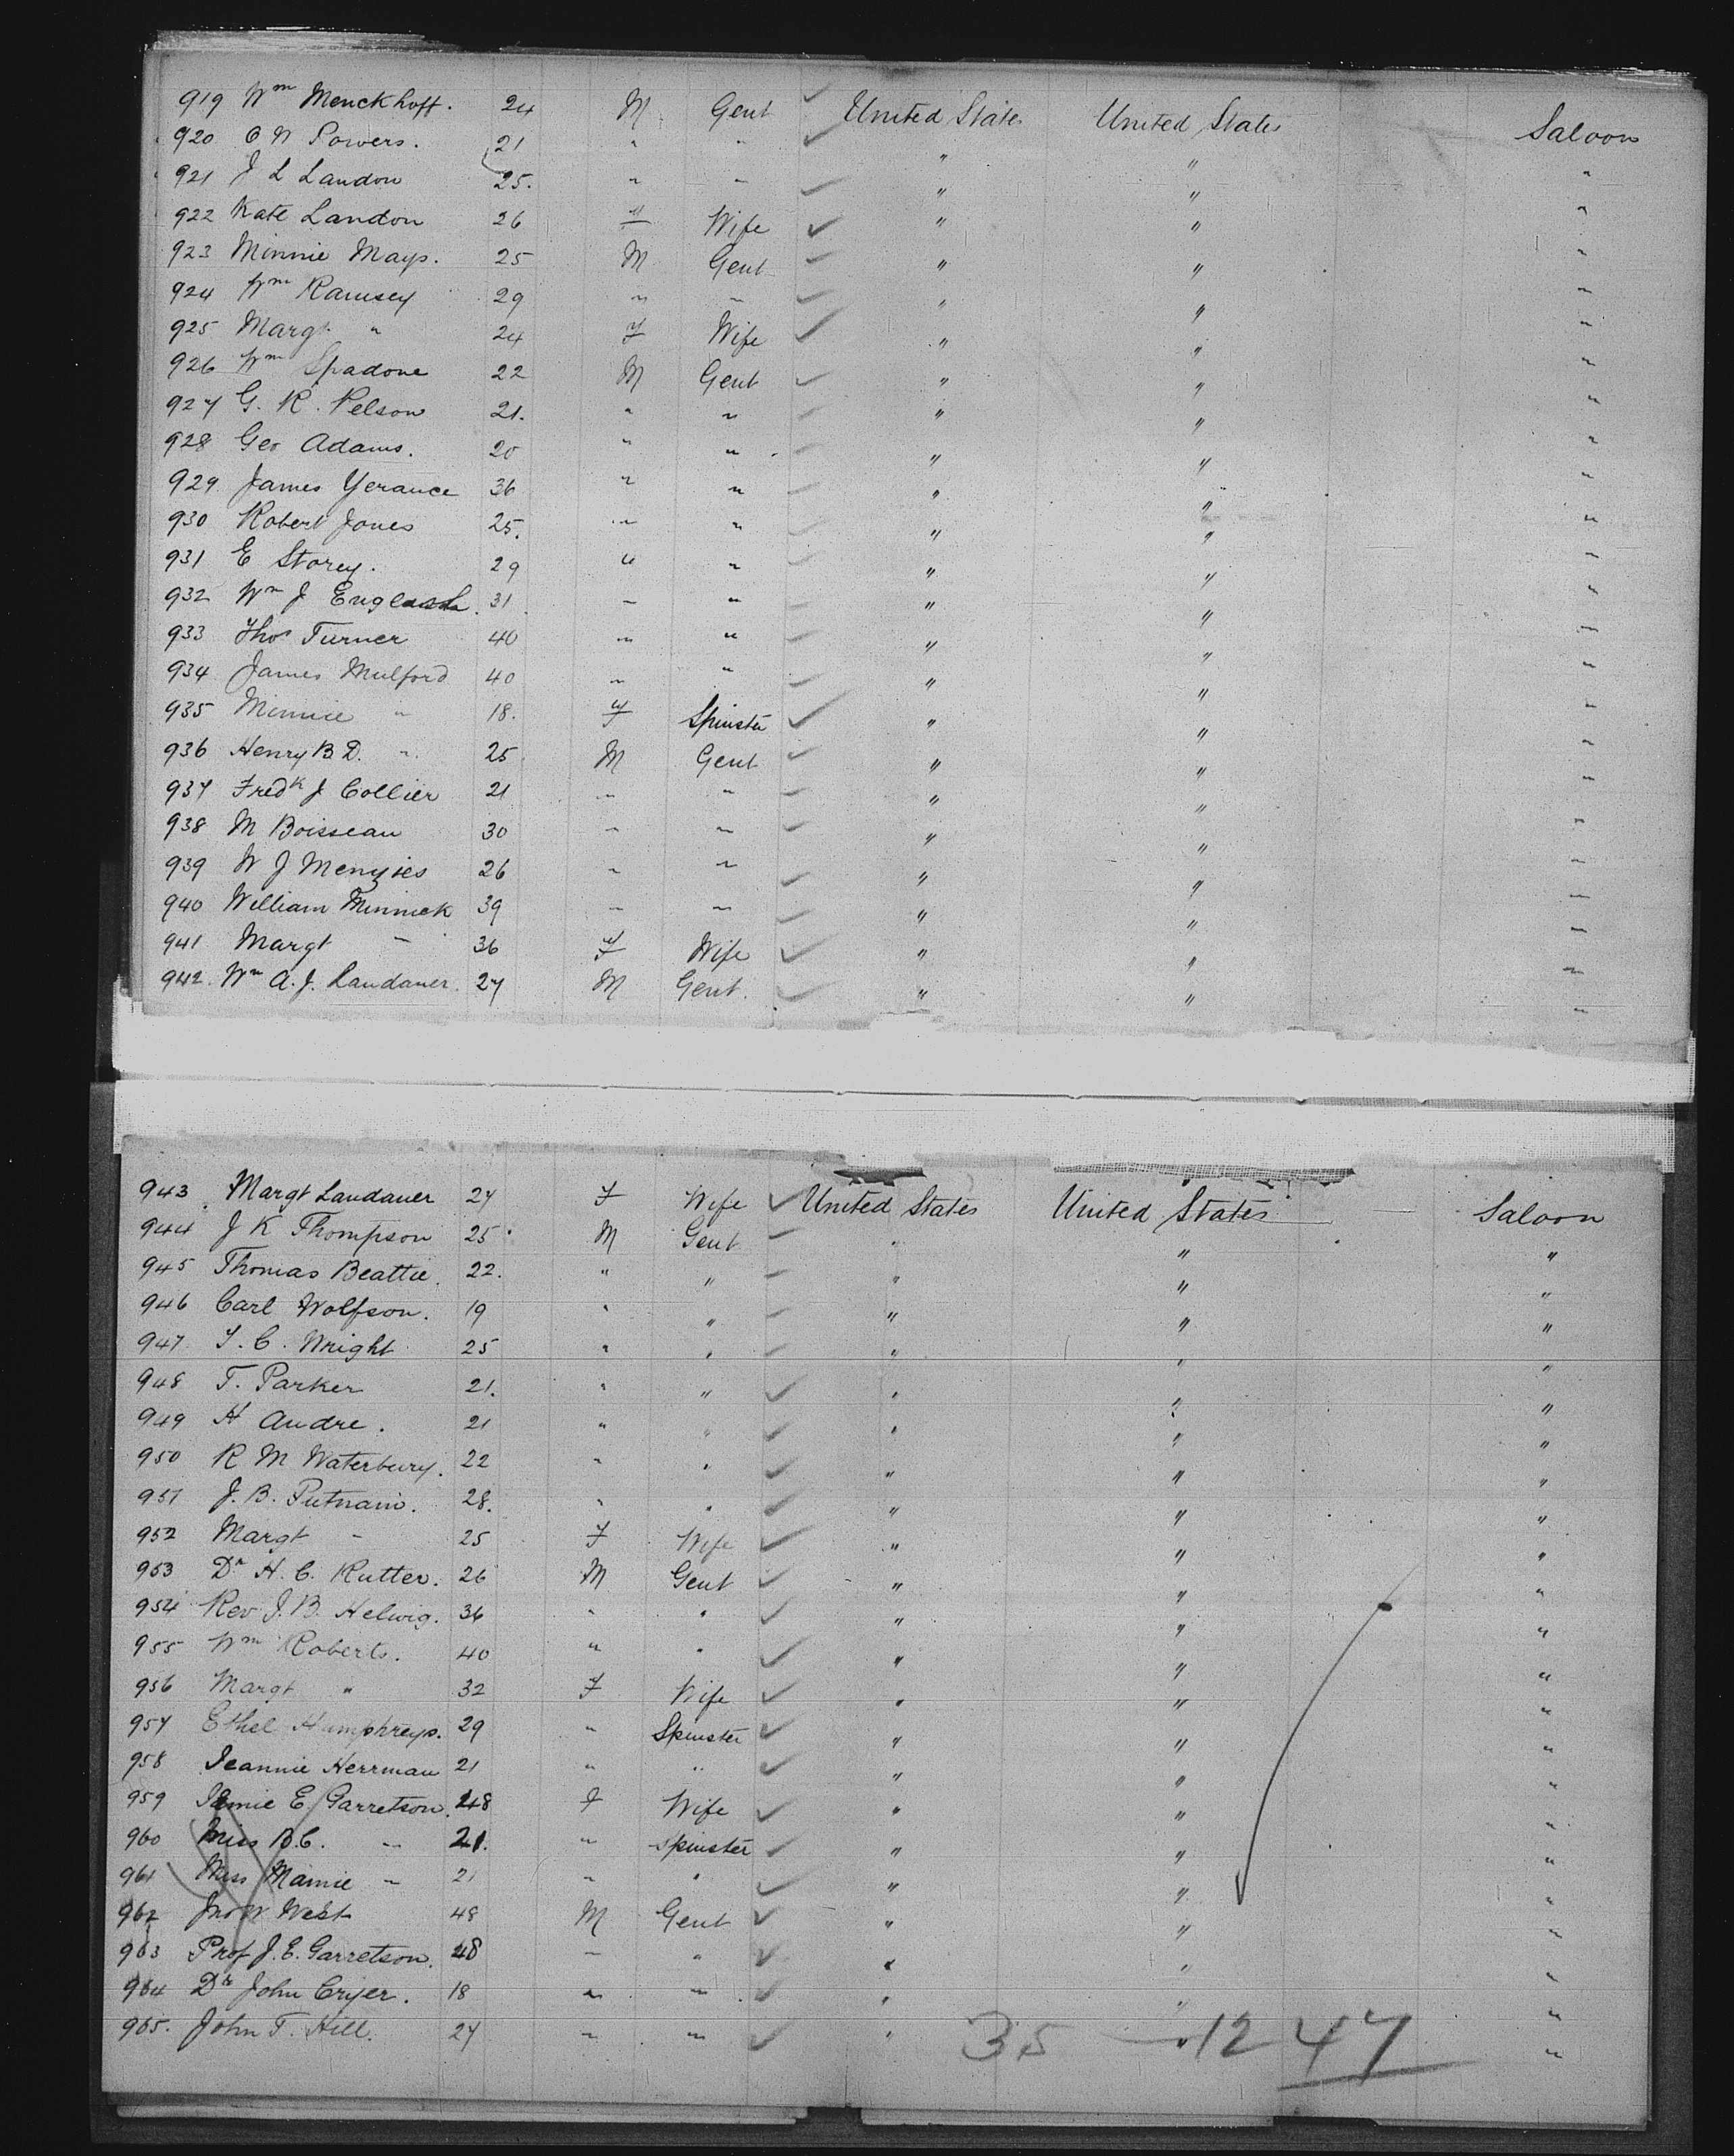 919 Wm Menckhoff. 24 M Gent United States United States Saloon
920 O N Powers. 21 " " " " "
921 J L Landon 25. " " " " "
922 Kate Landon 26 " Wife " " "
923 Minnie Mays. 25 M Gent " " "
924 Wm Ramsey 29 " " " " "
925 Margt " 24 F Wife " " "
926 Wm Spadone 22 M Gent " " "
927 G. R. Nelson 21. " " " " "
928 Geo Adams. 20 " " " " "
929 James Yerance 36 " " " " "
930 Robert Jones 25. " " " " "
931 E Storey. 29 " " " " "
932 Wm J English. 31 " " " " "
933 Thos Turner 40 " " " " "
934 James Mulford 40 " " " " "
935 Minnie " 18. F Spinster " " "
936 Henry B. D. " 25 M Gent " " "
937 Fredk J Collier 21 " " " " "
938 M Boisseau 30 " " " " "
939 W J Menzies 26 " " " " "
940 William Minnick 39 " " " " "
941 Margt " 36 F Wife " " "
942. Wm A. J. Landauer. 27 M Gent. " " "
943. Margt Landauer 27 F Wife United States United States Saloon
944 J K Thompson 25 M Gent " " "
945 Thomas Beattie. 22. " " " " "
946 Carl Wolfson. 19 " " " " "
947 T. C. Wright 25 " " " " "
948 T. Parker 21. " " " " "
949 H Andre. 21 " " " " "
950 R M Waterbury. 22 " " " " "
951 J. B. Putnam. 28. " " " " "
952 Margt " 25 F Wife " " "
953 Dr H. C. Rutter. 26 M Gent " " "
954 Rev J. B. Helwig. 36 " " " " "
955 Wm Roberts. 40 " " " " "
956 Margt " 32 F Wife " " "
957 Ethel Humphreys. 29 " Spinster " " "
958 Jeannie Herrman 21 " " " " "
959 E. Garretson. 48 F Wife " " "
960 Miss B. C. " 21. " Spinster " " "
961 Miss Mamie " 21 " " " " "
962 Jno W West 48 M Gent " " "
963 Prof J. E. Garretson. 48 " " " " "
964 Dr John Cryer. 18 " " " " "
965. John T. Hill. 27 " " " " "
35 12 47